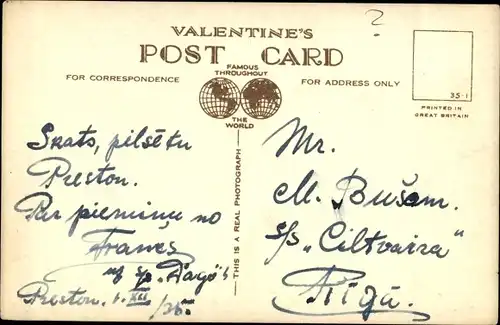 VALENTINE'S
POST CARD
FAMOUS
THROUGHOUT
THE
WORLD
FOR CORRESPONDENCE
FOR ADDRESS ONLY
35-1
PRINTED IN
GREAT BRITAIN
THIS IS A REAL PHOTOGRAPH
Skats, pilsētu
Preston.
Par piemiņu no
Preston. 1. XII
Mr.
M. Bušam.
s/s „Ciltvaira"
Rīgā.